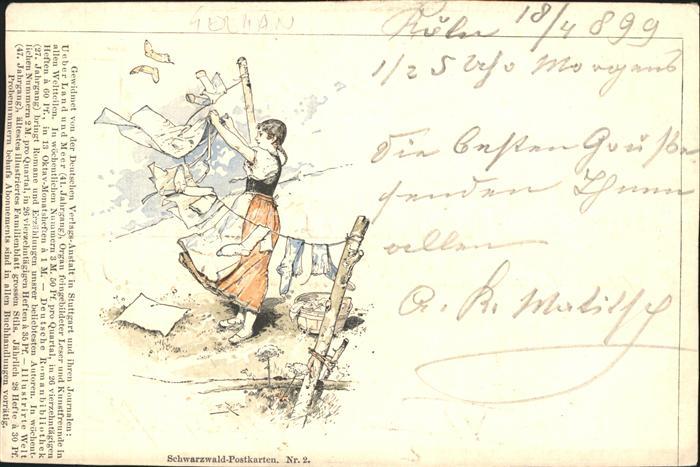 Köln 18/4 899
1/2 5 Uhr Morgens
die besten Grüße
senden Ihnen
allen
Gewidmet von der Deutschen Verlags-Anstalt in Stuttgart und ihren Journalen:
Ueber Land und Meer (41. Jahrgang), Organ feingebildeter Leser und Kunstfreunde in
allen Weltteilen. In wöchentlichen Nummern 3 M. 50 Pf. pro Quartal, in 26 vierzehntägigen
Heften à 60 Pf., in 13 Oktav-Monatsheften à 1 M. — Deutsche Romanbibliothek
(27. Jahrgang) bringt Romane und Erzählungen unsrer beliebtesten Autoren. In wöchent-
lichen Nummern 2 M. pro Quartal, in 26 vierzehntägigen Heften à 35 Pf. — Illustrirte Welt
(47. Jahrgang), ältestes illustriertes Familienblatt grossen Stils. Jährlich 28 Hefte à 30 Pf.
Probenummern behufs Abonnements sind in allen Buchhandlungen vorrätig.
Schwarzwald-Postkarten. Nr. 2.